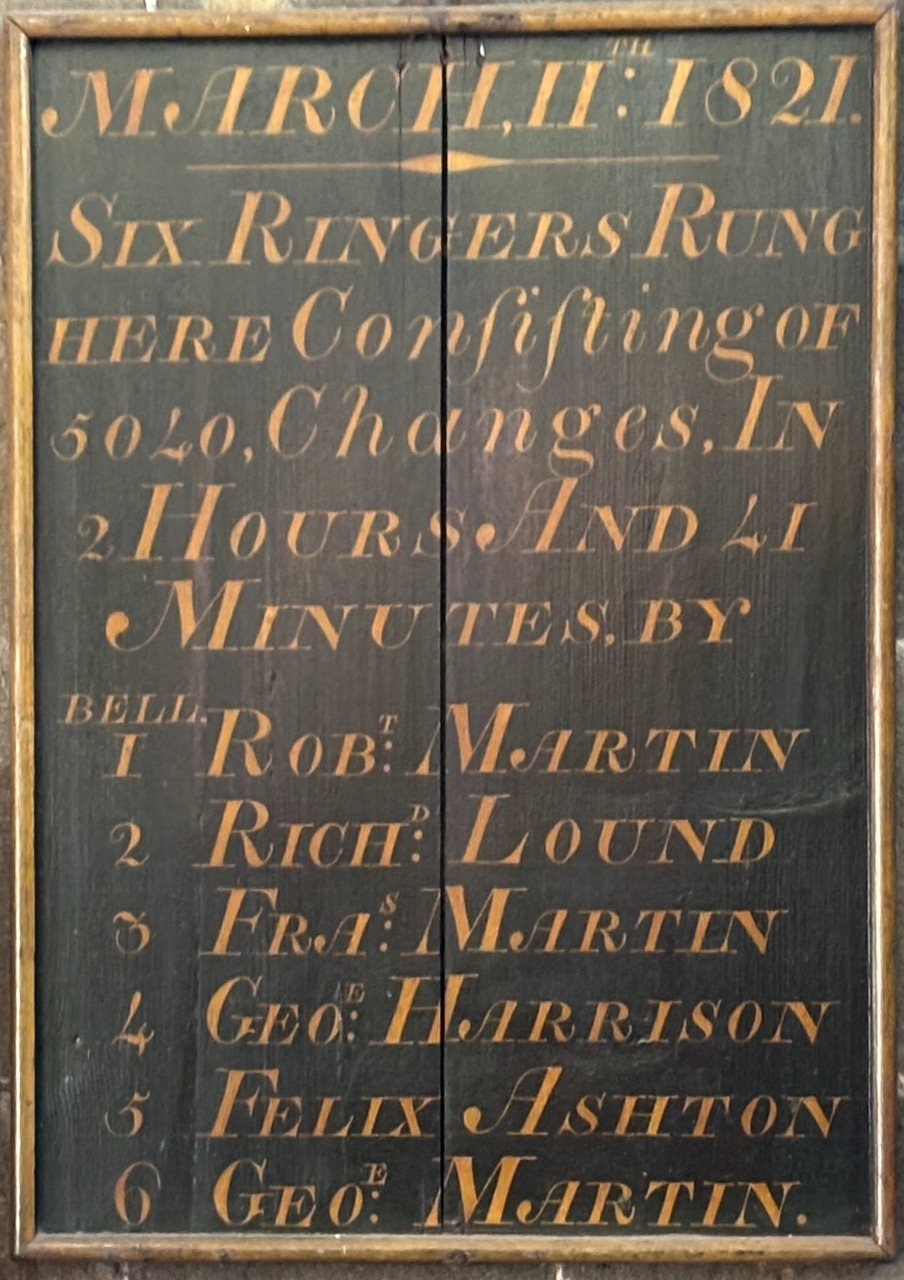 MARCH, 11TH: 1821.
SIX RINGERS RUNG
HERE Conſiſting OF
5040, Changes, IN
2 HOURS AND 41
MINUTES, BY
BELL.
1 ROBT: MARTIN
2 RICHD: LOUND
3 FRAS: MARTIN
4 GEOE: HARRISON
5 FELIX ASHTON
6 GEOE: MARTIN.